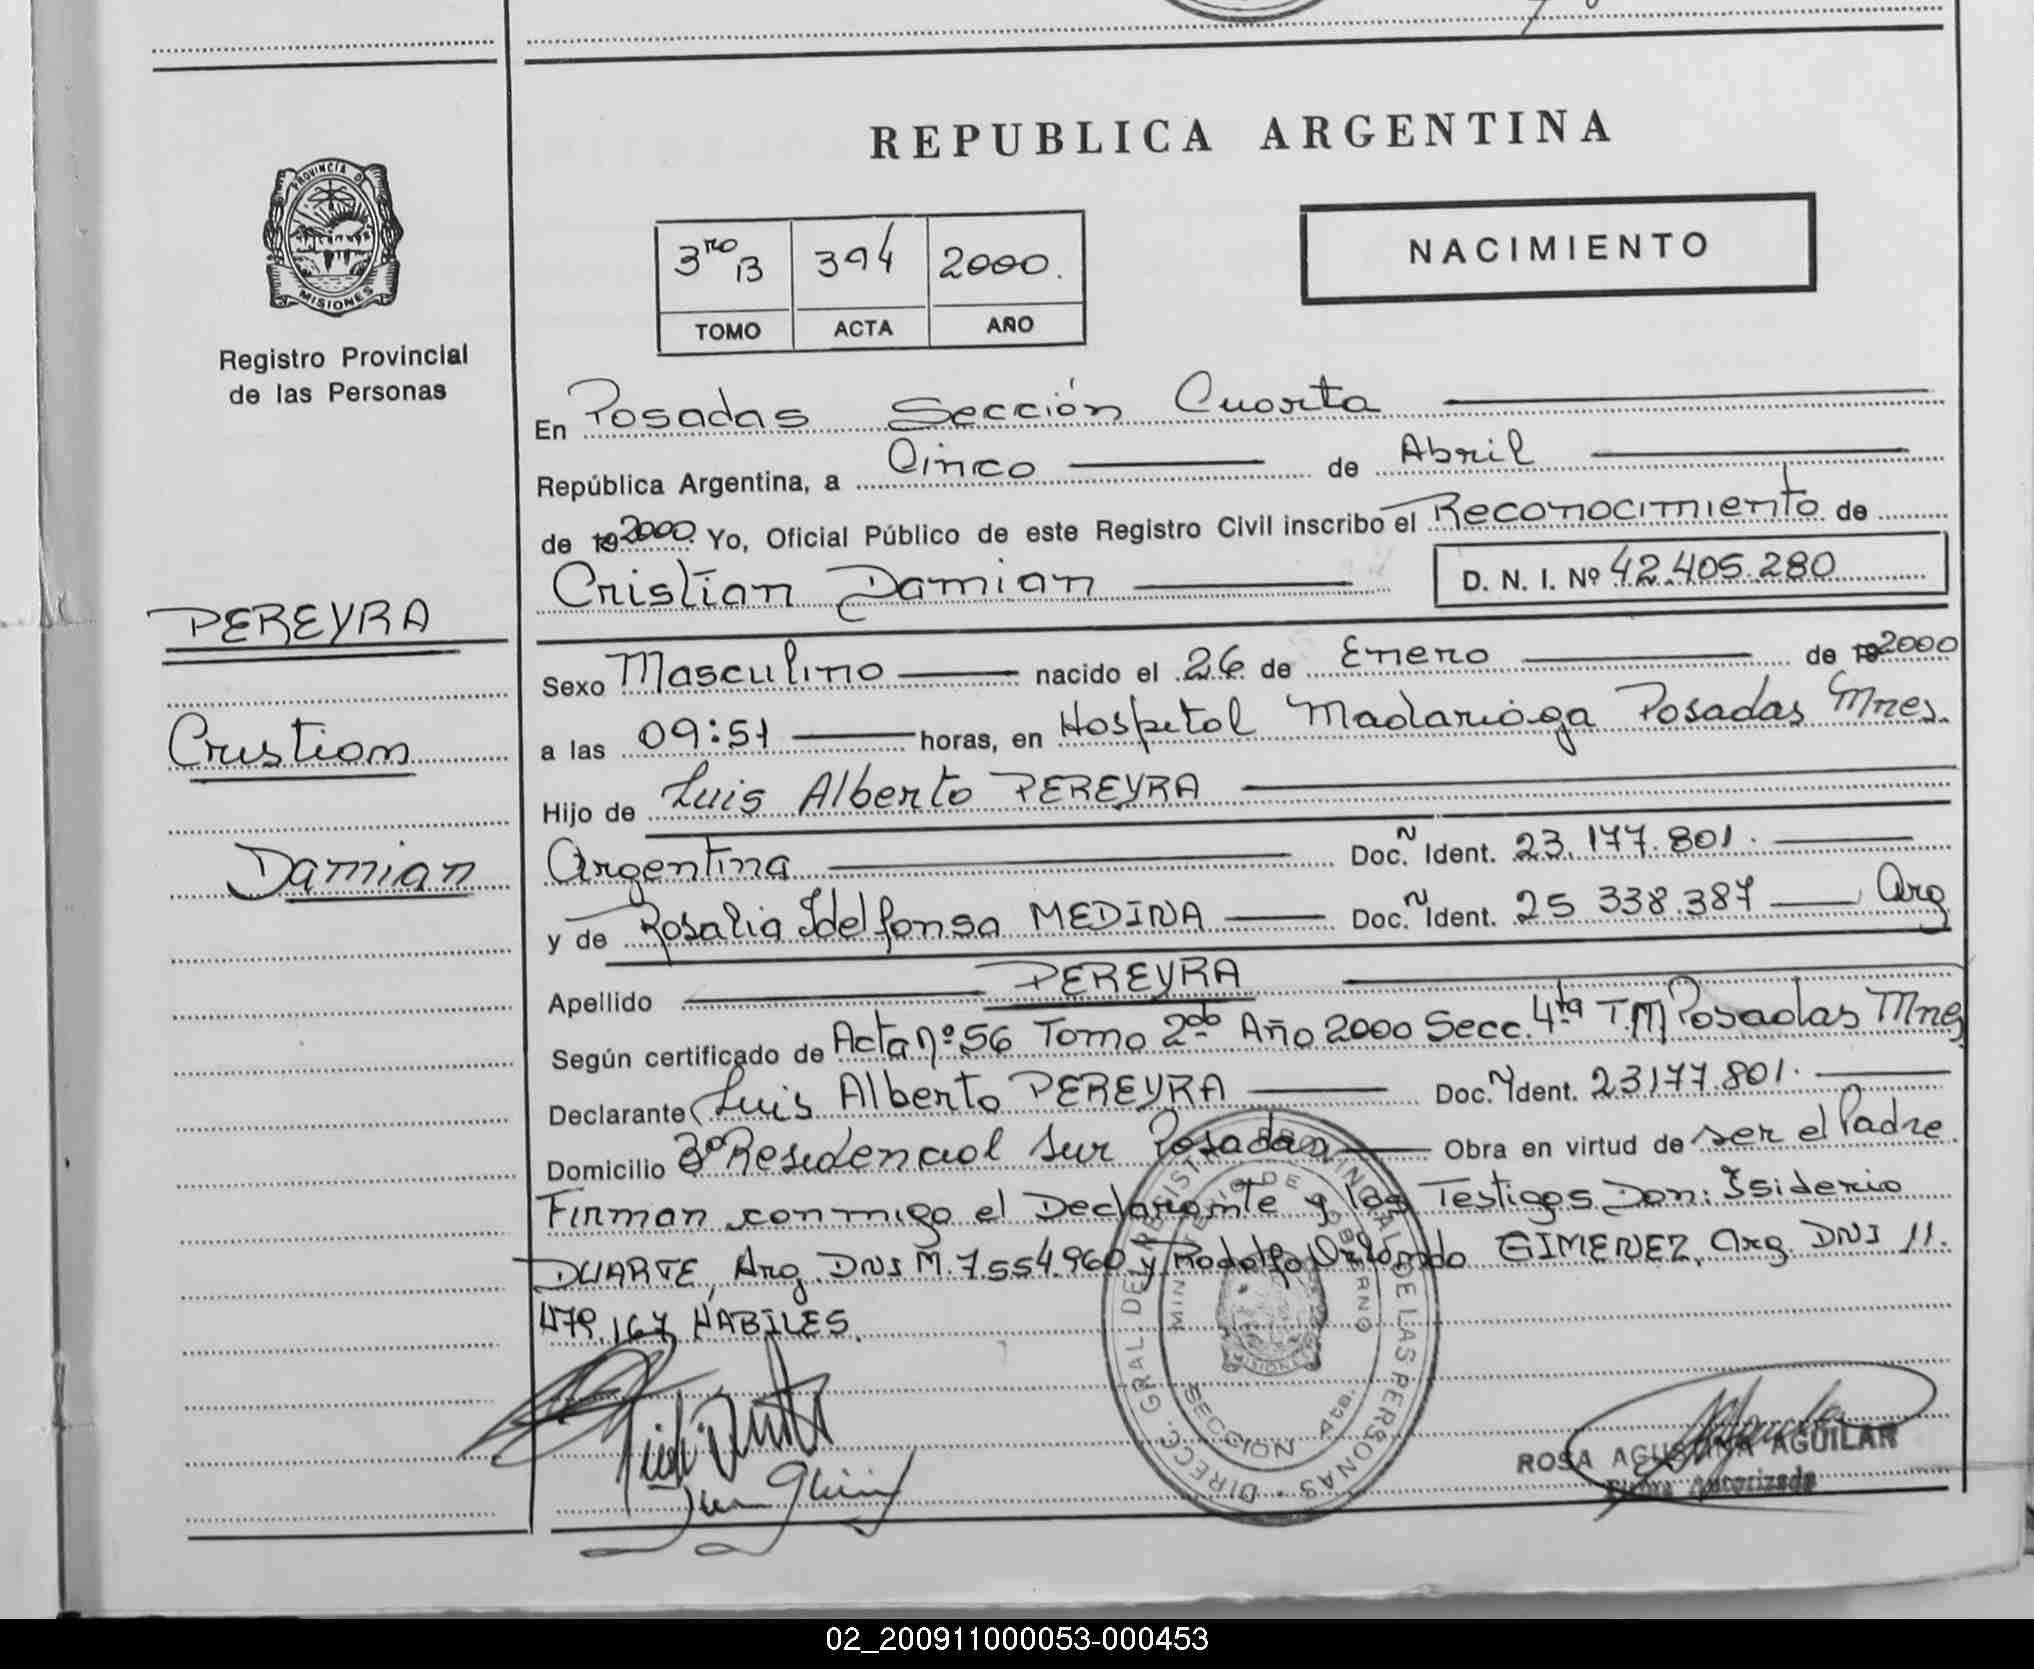 REPUBLICA ARGENTINA
PROVINCIA DE
MISIONES
Registro Provincial
de las Personas
3ro B 394 2000.
TOMO ACTA AÑO
NACIMIENTO
En Posadas Sección Cuarta
República Argentina, a Cinco de Abril
de 19 2000. Yo, Oficial Público de este Registro Civil inscribo el Reconocimiento de
Cristian Damian D. N. I. Nº 42.405.280
PEREYRA
Cristian
Damian
Sexo Masculino nacido el 26 de Enero de 19 2000
a las 09:51 horas, en Hospital Madariaga Posadas Mnes.
Hijo de Luis Alberto PEREYRA
Argentina Doc. N Ident. 23.177.801.
y de Rosalia Idelfonsa MEDINA Doc. N Ident. 25 338.387 Arg
Apellido PEREYRA
Según certificado de Acta nº 56 Tomo 2do Año 2000 Secc. 4ta T.M Posadas Mnes
Declarante Luis Alberto PEREYRA Doc. N Ident. 23177.801.
Domicilio Bº Residencial Sur Posadas Obra en virtud de ser el Padre
Firman conmigo el Declarante y los Testigos Don: Isiderio
DUARTE, Arg. DNI M. 7.554.960 y Rodolfo Orlando GIMENEZ, Arg. DNI 11.
479.167 HABILES.
DIRECC. GRAL. DE REGISTRO PROVINCIAL DE LAS PERSONAS
MINISTERIO DE GOBIERNO
MISIONES
SECCION 4ta.
ROSA AGUSTINA AGUILAR
Firma Autorizada
02_200911000053-000453